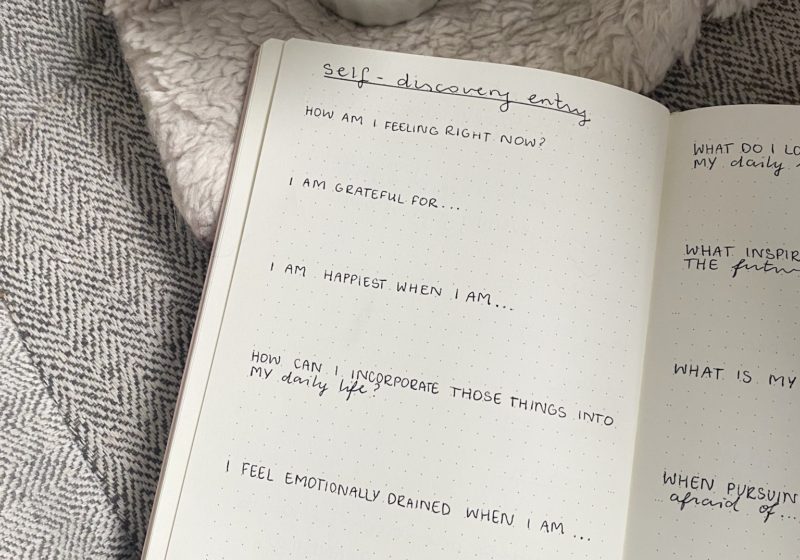 self-discovery entry
HOW AM I FEELING RIGHT NOW?
I AM GRATEFUL FOR...
I AM HAPPIEST WHEN I AM...
HOW CAN I INCORPORATE THOSE THINGS INTO
MY daily life?
I FEEL EMOTIONALLY DRAINED WHEN I AM...
WHAT DO I
MY daily
WHAT
THE
WHAT IS MY
WHEN
afraid of...